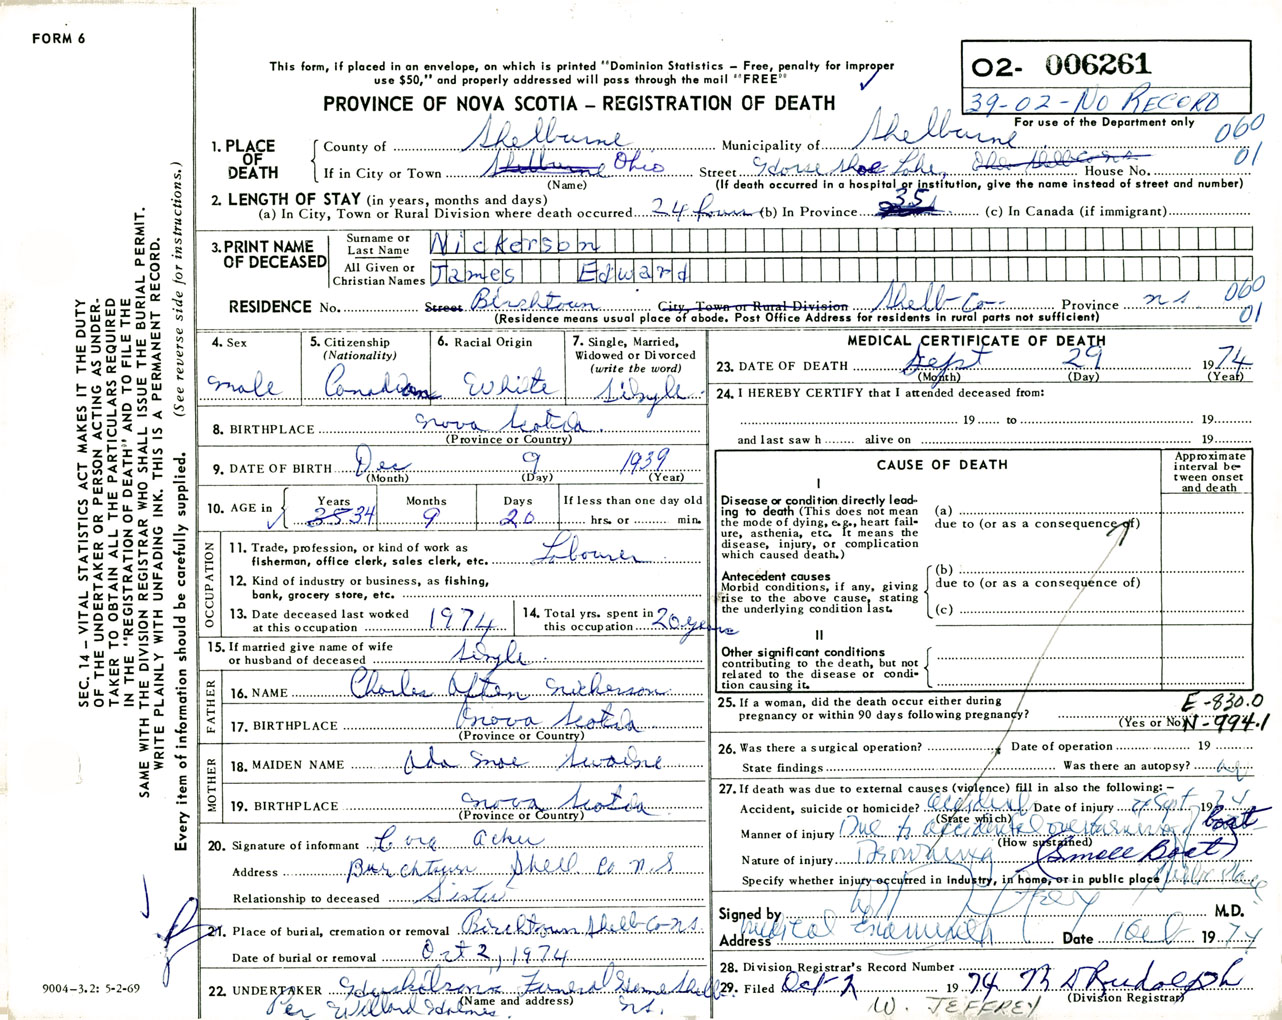 FORM 6
This form, if placed in an envelope, on which is printed "Dominion Statistics – Free, penalty for improper
use $50," and properly addressed will pass through the mail "FREE"
PROVINCE OF NOVA SCOTIA – REGISTRATION OF DEATH
02- 006261
39-02-No Record
For use of the Department only
060
01
1. PLACE OF DEATH
County of Shelburne Municipality of Shelburne
If in City or Town Shelburne Ohio Street Horse Shoe Lake, House No.
(Name) (If death occurred in a hospital or institution, give the name instead of street and number)
2. LENGTH OF STAY (in years, months and days)
(a) In City, Town or Rural Division where death occurred 24 hours (b) In Province 35 (c) In Canada (if immigrant)
3. PRINT NAME OF DECEASED
Surname or Last Name Nickerson
All Given or Christian Names James Edward
RESIDENCE No. Street Birchtown City, Town or Rural Division Shelb-Co- Province NS 060
(Residence means usual place of abode. Post Office Address for residents in rural parts not sufficient) 01
4. Sex Male
5. Citizenship (Nationality) Canadian
6. Racial Origin White
7. Single, Married, Widowed or Divorced (write the word) Single
8. BIRTHPLACE Nova Scotia
(Province or Country)
9. DATE OF BIRTH Dec 9 1939
(Month) (Day) (Year)
10. AGE in Years 35 34 Months 9 Days 20 If less than one day old hrs. or min.
OCCUPATION
11. Trade, profession, or kind of work as fisherman, office clerk, sales clerk, etc. Labourer
12. Kind of industry or business, as fishing, bank, grocery store, etc.
13. Date deceased last worked at this occupation 1974
14. Total yrs. spent in this occupation 20 years
15. If married give name of wife or husband of deceased Single
FATHER
16. NAME Charles Nickerson
17. BIRTHPLACE Nova Scotia
(Province or Country)
MOTHER
18. MAIDEN NAME Ada Mae Swaine
19. BIRTHPLACE Nova Scotia
(Province or Country)
20. Signature of informant Cora Acker
Address Birchtown Shell Co N S
Relationship to deceased Sister
21. Place of burial, cremation or removal Birchtown Shelb-Co-NS.
Date of burial or removal Oct 2, 1974
22. UNDERTAKER Funeral Home
(Name and address)
Per Willard Holmes. NS.
MEDICAL CERTIFICATE OF DEATH
23. DATE OF DEATH Sept 29 1974
(Month) (Day) (Year)
24. I HEREBY CERTIFY that I attended deceased from:
19 to 19
and last saw h alive on 19
CAUSE OF DEATH
Approximate interval between onset and death
I
Disease or condition directly lead-
ing to death (This does not mean
the mode of dying, e.g., heart fail-
ure, asthenia, etc. It means the
disease, injury, or complication
which caused death.)
(a)
due to (or as a consequence of)
Antecedent causes
Morbid conditions, if any, giving
rise to the above cause, stating
the underlying condition last.
(b)
due to (or as a consequence of)
(c)
II
Other significant conditions
contributing to the death, but not
related to the disease or condi-
tion causing it.
25. If a woman, did the death occur either during
pregnancy or within 90 days following pregnancy?
(Yes or No)
E-830.0
N-994.1
26. Was there a surgical operation? Date of operation 19
State findings Was there an autopsy? no
27. If death was due to external causes (violence) fill in also the following: –
Accident, suicide or homicide? accident Date of injury 29 Sept 1974
(State which)
Manner of injury Due to accidental overturning boat
(How sustained)
Nature of injury Drowning (Small Boat)
Specify whether injury occurred in industry, in home, or in public place Public place
Signed by M.D.
Address Medical Examiner Date 1 Oct 1974
28. Division Registrar's Record Number
29. Filed Oct 2 1974 M D Rudolph
(Division Registrar)
W. JEFFREY
SEC. 14 – VITAL STATISTICS ACT MAKES IT THE DUTY
OF THE UNDERTAKER OR PERSON ACTING AS UNDER-
TAKER TO OBTAIN ALL THE PARTICULARS REQUIRED
IN THE "REGISTRATION OF DEATH" AND TO FILE THE
SAME WITH THE DIVISION REGISTRAR WHO SHALL ISSUE THE BURIAL PERMIT.
WRITE PLAINLY WITH UNFADING INK. THIS IS A PERMANENT RECORD.
Every item of information should be carefully supplied. (See reverse side for instructions.)
9004-3.2: 5-2-69